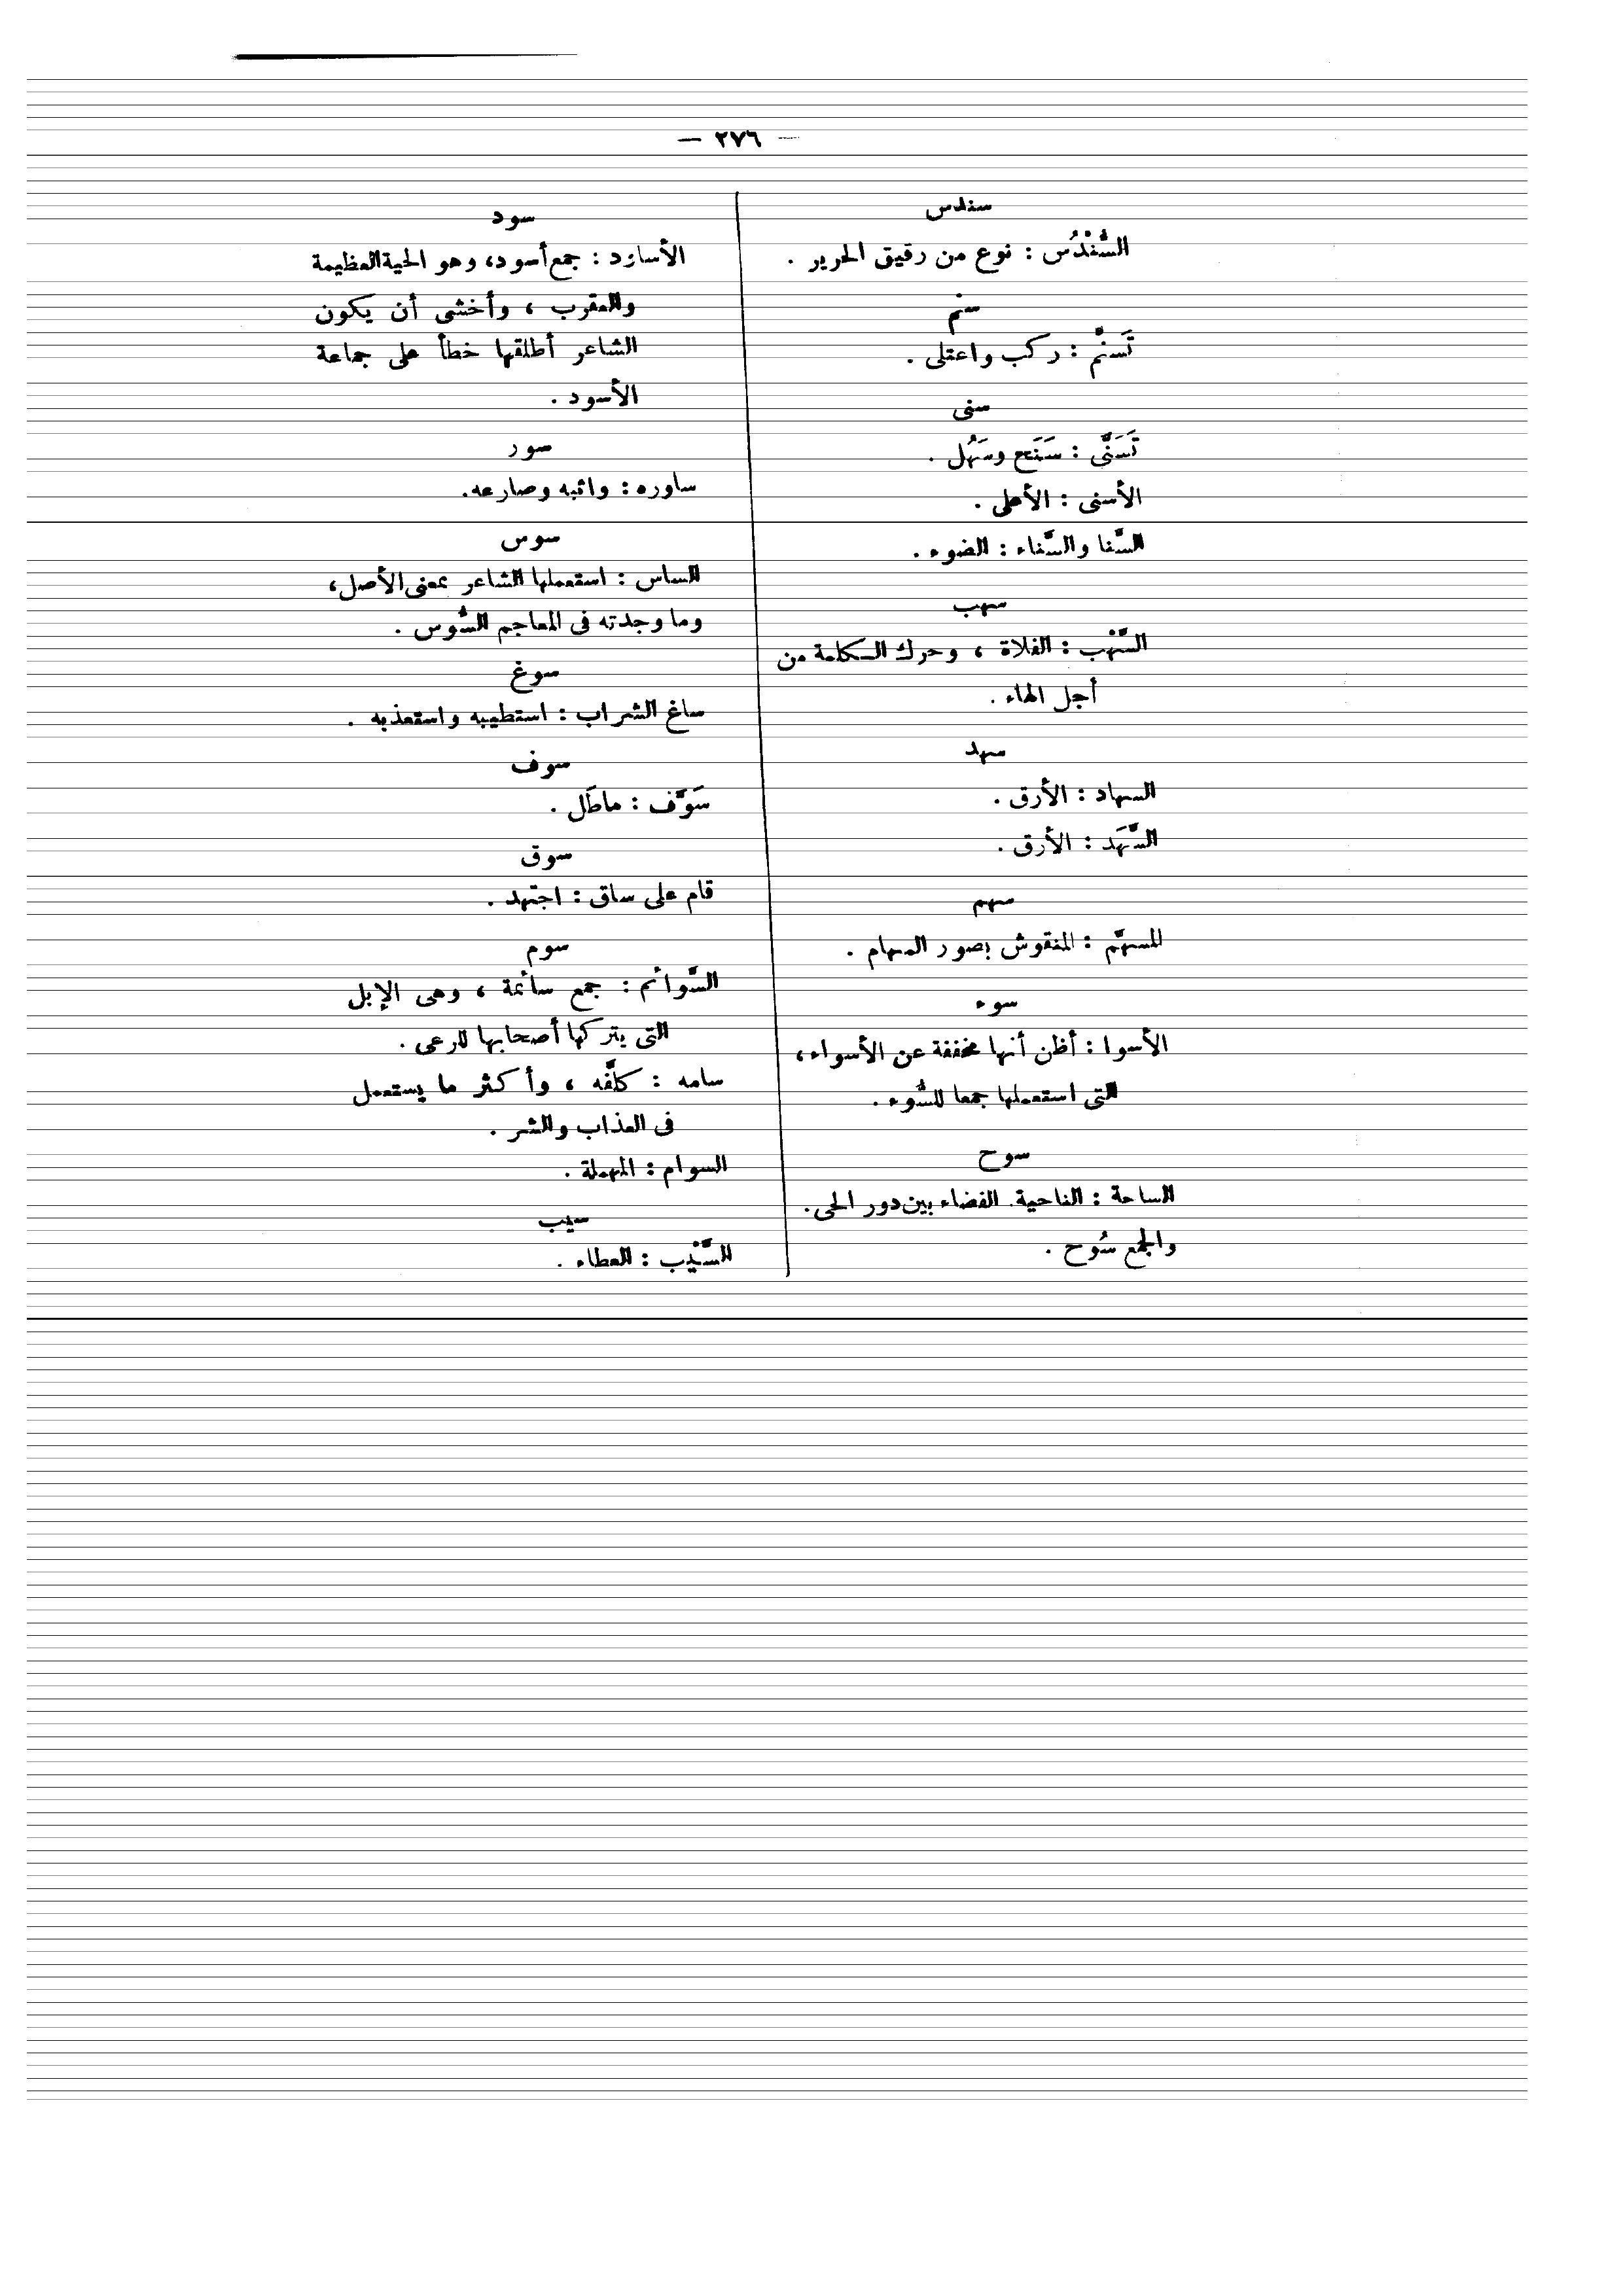 — ٢٧٦ —
سندس
السُّنْدُس : نوع من رقيق الحرير .
سنم
تَسنَّم : ركب واعتلى .
سنى
تَسَنَّى : سَنَح وسَهُل .
الأسنى : الأعلى .
السَّنا والسَّناء : الضوء .
سهب
السَّهْب : الفلاة ، وحرك الكلمة من
أجل الهاء .
سهد
السهاد : الأرق .
السَّهَد : الأرق .
سهم
المسهَّم : المنقوش بصور السهام .
سوء
الأسوا : أظن أنها مخففة عن الأسواء ،
التى استعملها جمعا للسُّوء .
سوح
الساحة : الناحية. الفضاء بين دور الحى .
والجمع سُوح .
سود
الأساوِد : جمع أسود ، وهو الحية العظيمة
والعقرب ، وأخشى أن يكون
الشاعر أطلقها خطأ على جماعة
الأسود .
سور
ساوره : واثبه وصارعه .
سوس
الساس : استعملها الشاعر بمعنى الأصل ،
وما وجدته فى المعاجم السُّوس .
سوغ
ساغ الشراب : استطيبه واستعذبه .
سوف
سَوَّف : ماطَل .
سوق
قام على ساق : اجتهد .
سوم
السَّوائم : جمع سائمة ، وهى الإبل
التى يتركها أصحابها للرعى .
سامه : كلَّفه ، وأكثر ما يستعمل
فى العذاب والشر .
السوام : المهملة .
سيب
السَّيْب : العطاء .